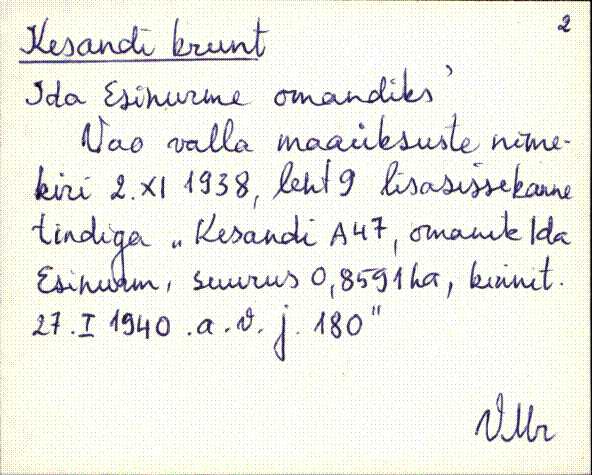 2
Kesandi krunt
Ida Esinurme omandiks
Vao valla maaüksuste nime-
kiri 2. XI 1938, leht 9 lisasissekanne
tindiga „Kesandi A47, omanik Ida
Esinurm, suurus 0,8591 ha, kinnit.
27. I 1940 .a. v. j. 180"
VMr